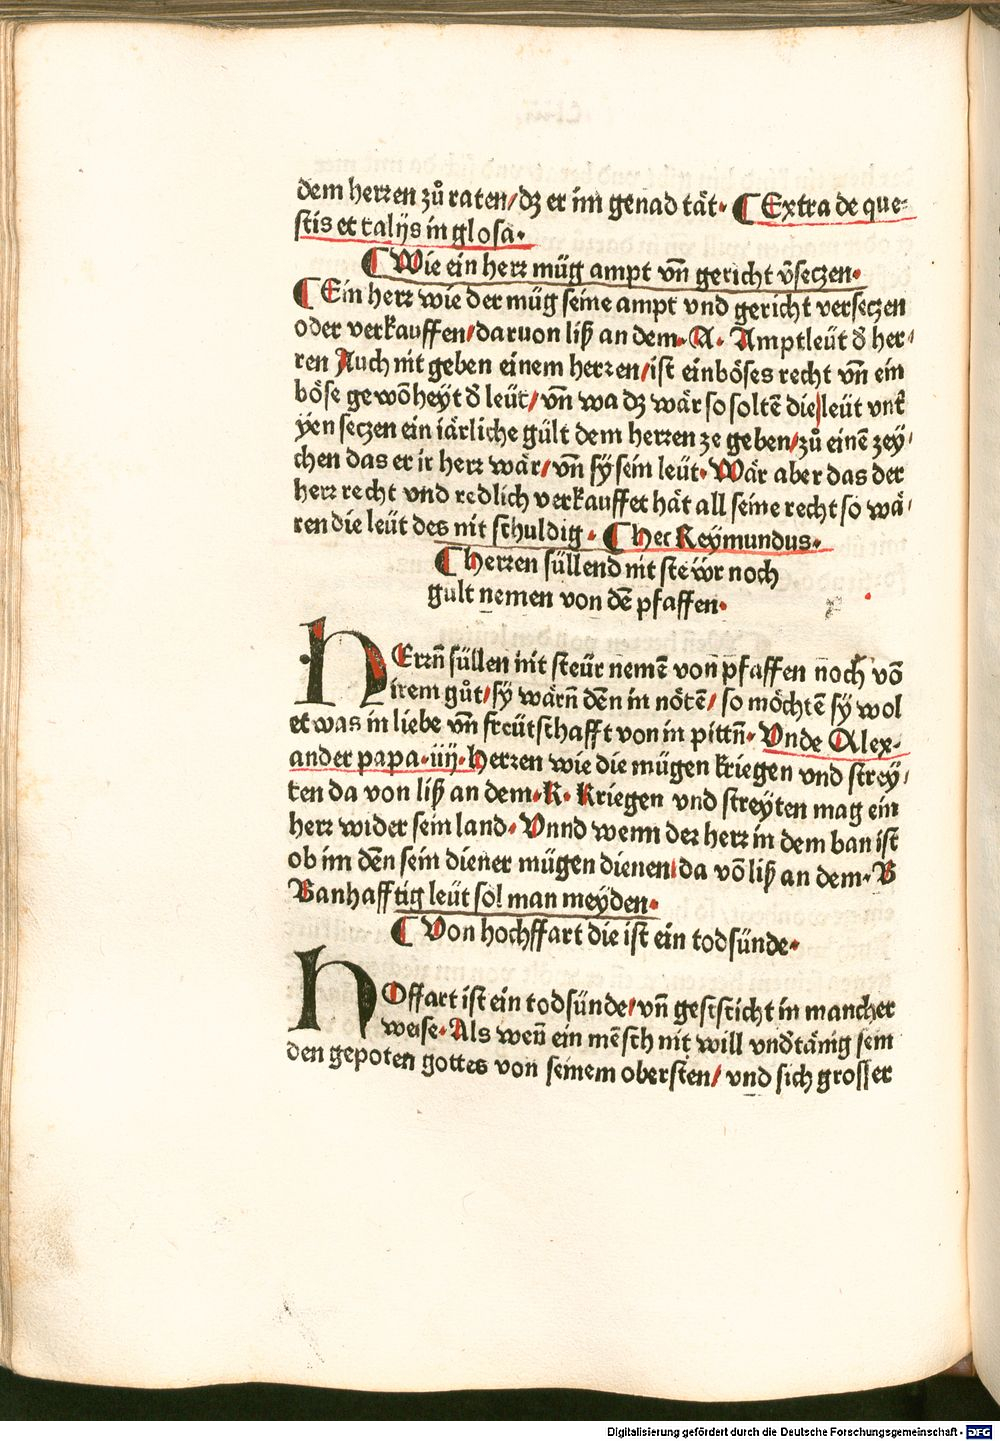 dem herren zů raten/dz er im genad tät. ¶ Extra de que⸗
stis et talijs in glosa.
¶ Wie ein herr müg ampt vñ gericht v̄seczen.
¶ Ein herr wie der müg seine ampt vnd gericht verseczen
oder verkauffen/daruon liß an dem. A. Amptleüt ď her⸗
ren Auch nit geben einem herren/ist ein böses recht vñ ein
böse gewõheyt ď leüt/vñ wa dz wär so soltẽ die leüt vnt̃
yen seczen ein iärliche gült dem herren ze geben/zů einẽ zey⸗
chen das er ir herr wär/vñ sÿ sein leüt. Wär aber das der
herr recht vnd redlich verkauffet hät all seine recht so wä⸗
ren die leüt des nit schuldig. ¶ Hec Reymundus.
¶ Herren süllend nit steẅr noch
gult nemen von dẽ pfaffen.
HErrñ süllen nit steür nemẽ von pfaffen noch võ
irem gůt/sÿ wärñ dẽn in nötẽ/so möchtẽ sÿ wol
etwas in liebe vñ freütschafft von in pittñ. Vnde Alex⸗
ander papa.iiij. Herren wie die mügen kriegen vnd strey⸗
ten da von liß an dem. K. Kriegen vnd streyten mag ein
herr wider sein land. Vnnd wenn der herr in dem ban ist
ob im dẽn sein diener mügen dienen/da võ liß an dem. B
Banhafftig leüt sol man meyden.
¶ Von hochffart die ist ein todsünde.
HOffart ist ein todsünde/vñ gestsicht in mancher
weise. Als weñ ein mẽsch nit will vnďtänig sein
den gepoten gottes von seinem obersten/vnd sich grosser
Digitalisierung gefördert durch die Deutsche Forschungsgemeinschaft - DFG